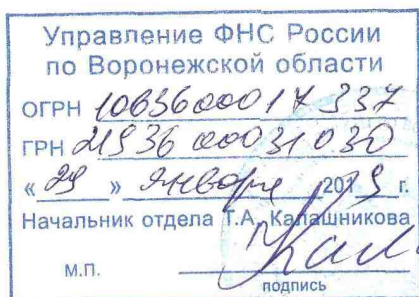 Управление ФНС России
по Воронежской области
ОГРН 1063600017337
ГРН 2193600031030
«29» января 2019 г.
Начальник отдела Т.А. Калашникова
М.П.
подпись